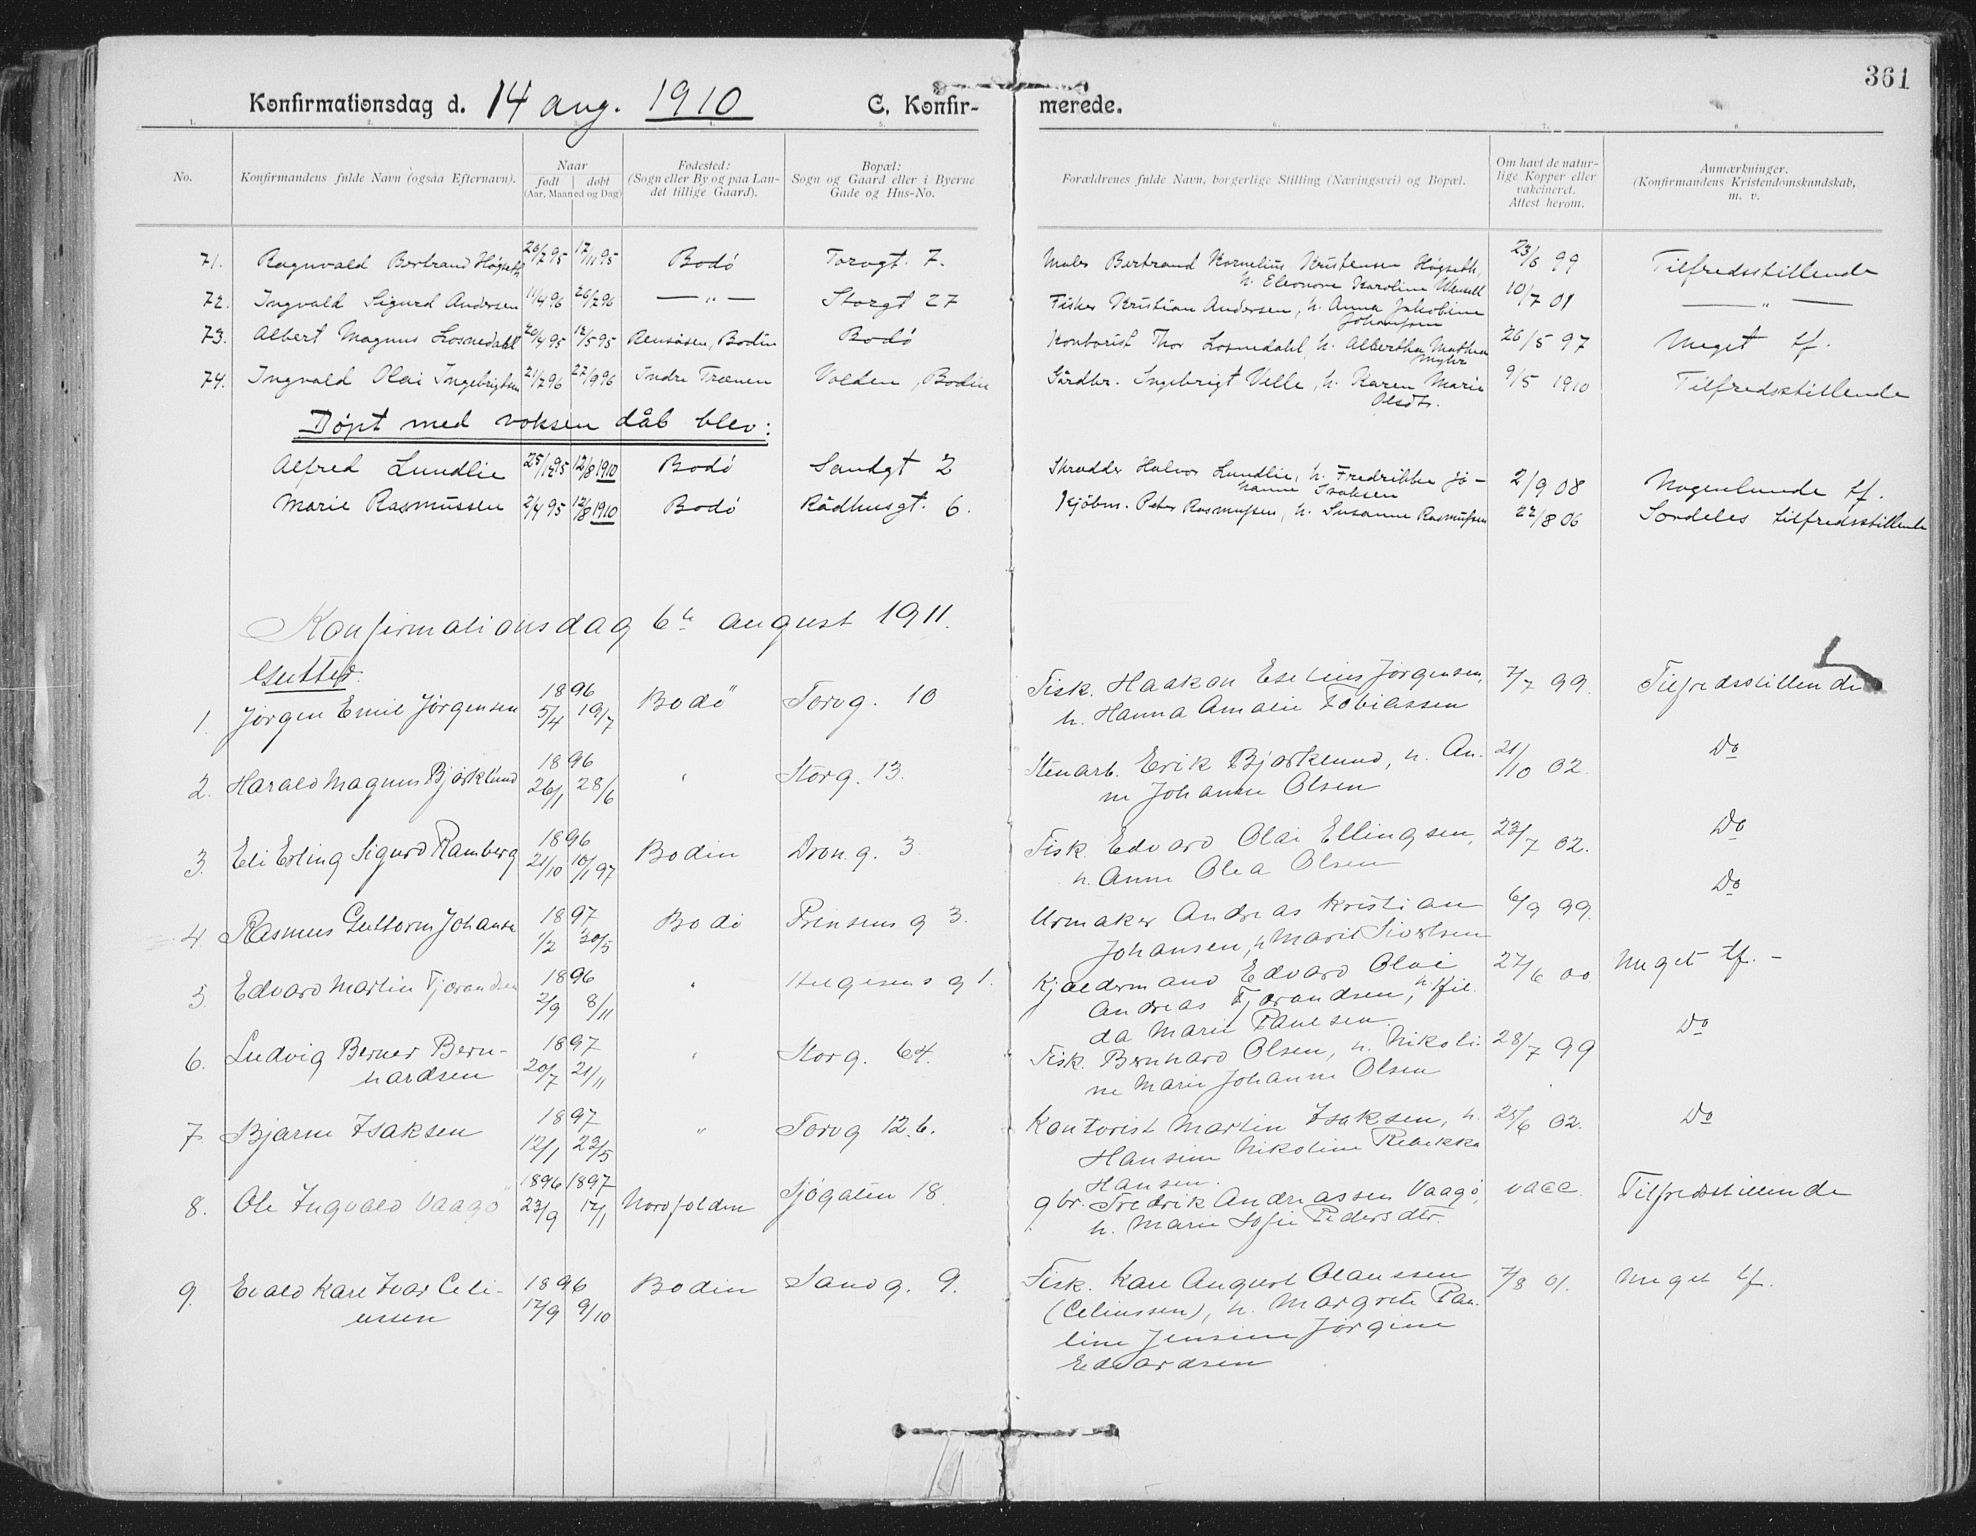 361
Konfirmationsdag d. 14 aug. 1910 C. Konfir- merede.
1. 2. 3. 4. 5. 6. 7. 8.
No. Konfirmandens fulde Navn (ogsaa Efternavn). Naar født døbt (Aar, Maaned og Dag) Fødested: (Sogn eller By og paa Landet tillige Gaard). Bopæl: Sogn og Gaard eller i Byerne Gade og Hus-No. Forældrenes fulde Navn, borgerlige Stilling (Næringsvei) og Bopæl. Om havt de naturlige Kopper eller vakcineret. Attest herom. Anmærkninger. (Konfirmandens Kristendomskundskab, m. v.
71. Ragnvald Bertrand Høgseth 26/7 95 17/11 95 Bodø Torvgt. 7. Maler Bertrand Kornelius Kristensen Høgseth, h. Eleonore Karoline 23/6 99 Tilfredsstillende
72. Ingvald Sigurd Andersen 11/4 96 26/7 96 — " — Storgt 27 Fisker Kristian Andersen, h. Anna Jakobine Johansen 10/7 01 — " —
73. Albert Magnus Losnedahl 20/4 95 12/5 95 Rensåsen, Bodin Bodø Kontorist Thor Losnedahl, h. Albertha Mathea 26/5 97 Meget tf.
74. Ingvald Olai Ingebrigtsen 21/7 96 27/9 96 Indre Trænen Volden, Bodin Gårdbr. Ingebrigt Velle, h. Karen Marie Olsdtr. 9/5 1910 Tilfredsstillende
Døpt med voksen dåb blev:
Alfred Lundlie 25/12 95 12/8 1910 Bodø Sandgt 2 Skrædder Halvor Lundlie, h. Fredrikke Johanne Isaksen 2/9 08 Nogenlunde tf.
Marie Rasmussen 2/4 95 12/8 1910 Bodø Rådhusgt. 6. Kjøbm. Peter Rasmussen, h. Susanne Rasmussen 22/8 06 Særdeles tilfredsstillende
Konfirmationsdag 6te august 1911.
Gutter.
1. Jørgen Emil Jørgensen 1896 5/4 19/7 Bodø Torvg. 10 Fisk. Haakon Eselius Jørgensen, 7/7 99. Tilfredsstillende
h. Hanna Amalie Tobiassen
2. Harald Magnus Bjørklund 1896 26/1 28/6 " Storg. 13. Stenarb. Erik Bjørklund, h. An- 21/10 02. Do
ne Johanne Olsen
3. Eli Erling Sigurd Ramberg 1896 21/10 10/1 97 Bodin Dron.g. 3. Fisk. Edvard Olai Ellingsen, 23/7 02. Do
h. Anne Olea Olsen
4. Rasmus Guttorm Johansen 1897 1/2 30/5 Bodø Prinsens g 3. Urmaker Andreas Kristian 6/9 99. Do
Johansen, h. Marie Sivertsen
5. Edvard Martin Fjærandsen 1896 2/9 8/11 " Helgesens g 1. Kjældermand Edvard Olai 27/6 00 Meget tf. -
Andreas Fjærandsen, h. Hil-
da Marie Paulsen.
6. Ludvig Berner Bern- 1897 20/7 21/11 " Storg. 64. Fisk. Bernhard Olsen, h. Nikoli- 28/7 99 Do
hardsen ne Marie Johanne Olsen
7. Bjarne Isaksen 1897 12/1 23/5 " Torvg 12.b. Kontorist Martin Isaksen, h. 25/6 02. Do
Hansine Nikoline Rebekka
Hansen.
8. Ole Ingvald Vaagø 1896 1897 23/9 17/1 Nordfolden Sjøgaten 18. gbr. Fredrik Andreassen Vaagø, vacc. Tilfredsstillende
h. Marie Sofie Pedersdtr.
9. Evald Karl Ivar Celi- 1896 17/9 9/10 Bodin Sandg. 9. Fisk. Karl August Olaussen 7/8 01. Meget tf.
ussen (Celiussen), h. Margrete Pau-
line Jensine Jørgine
Edvardsen